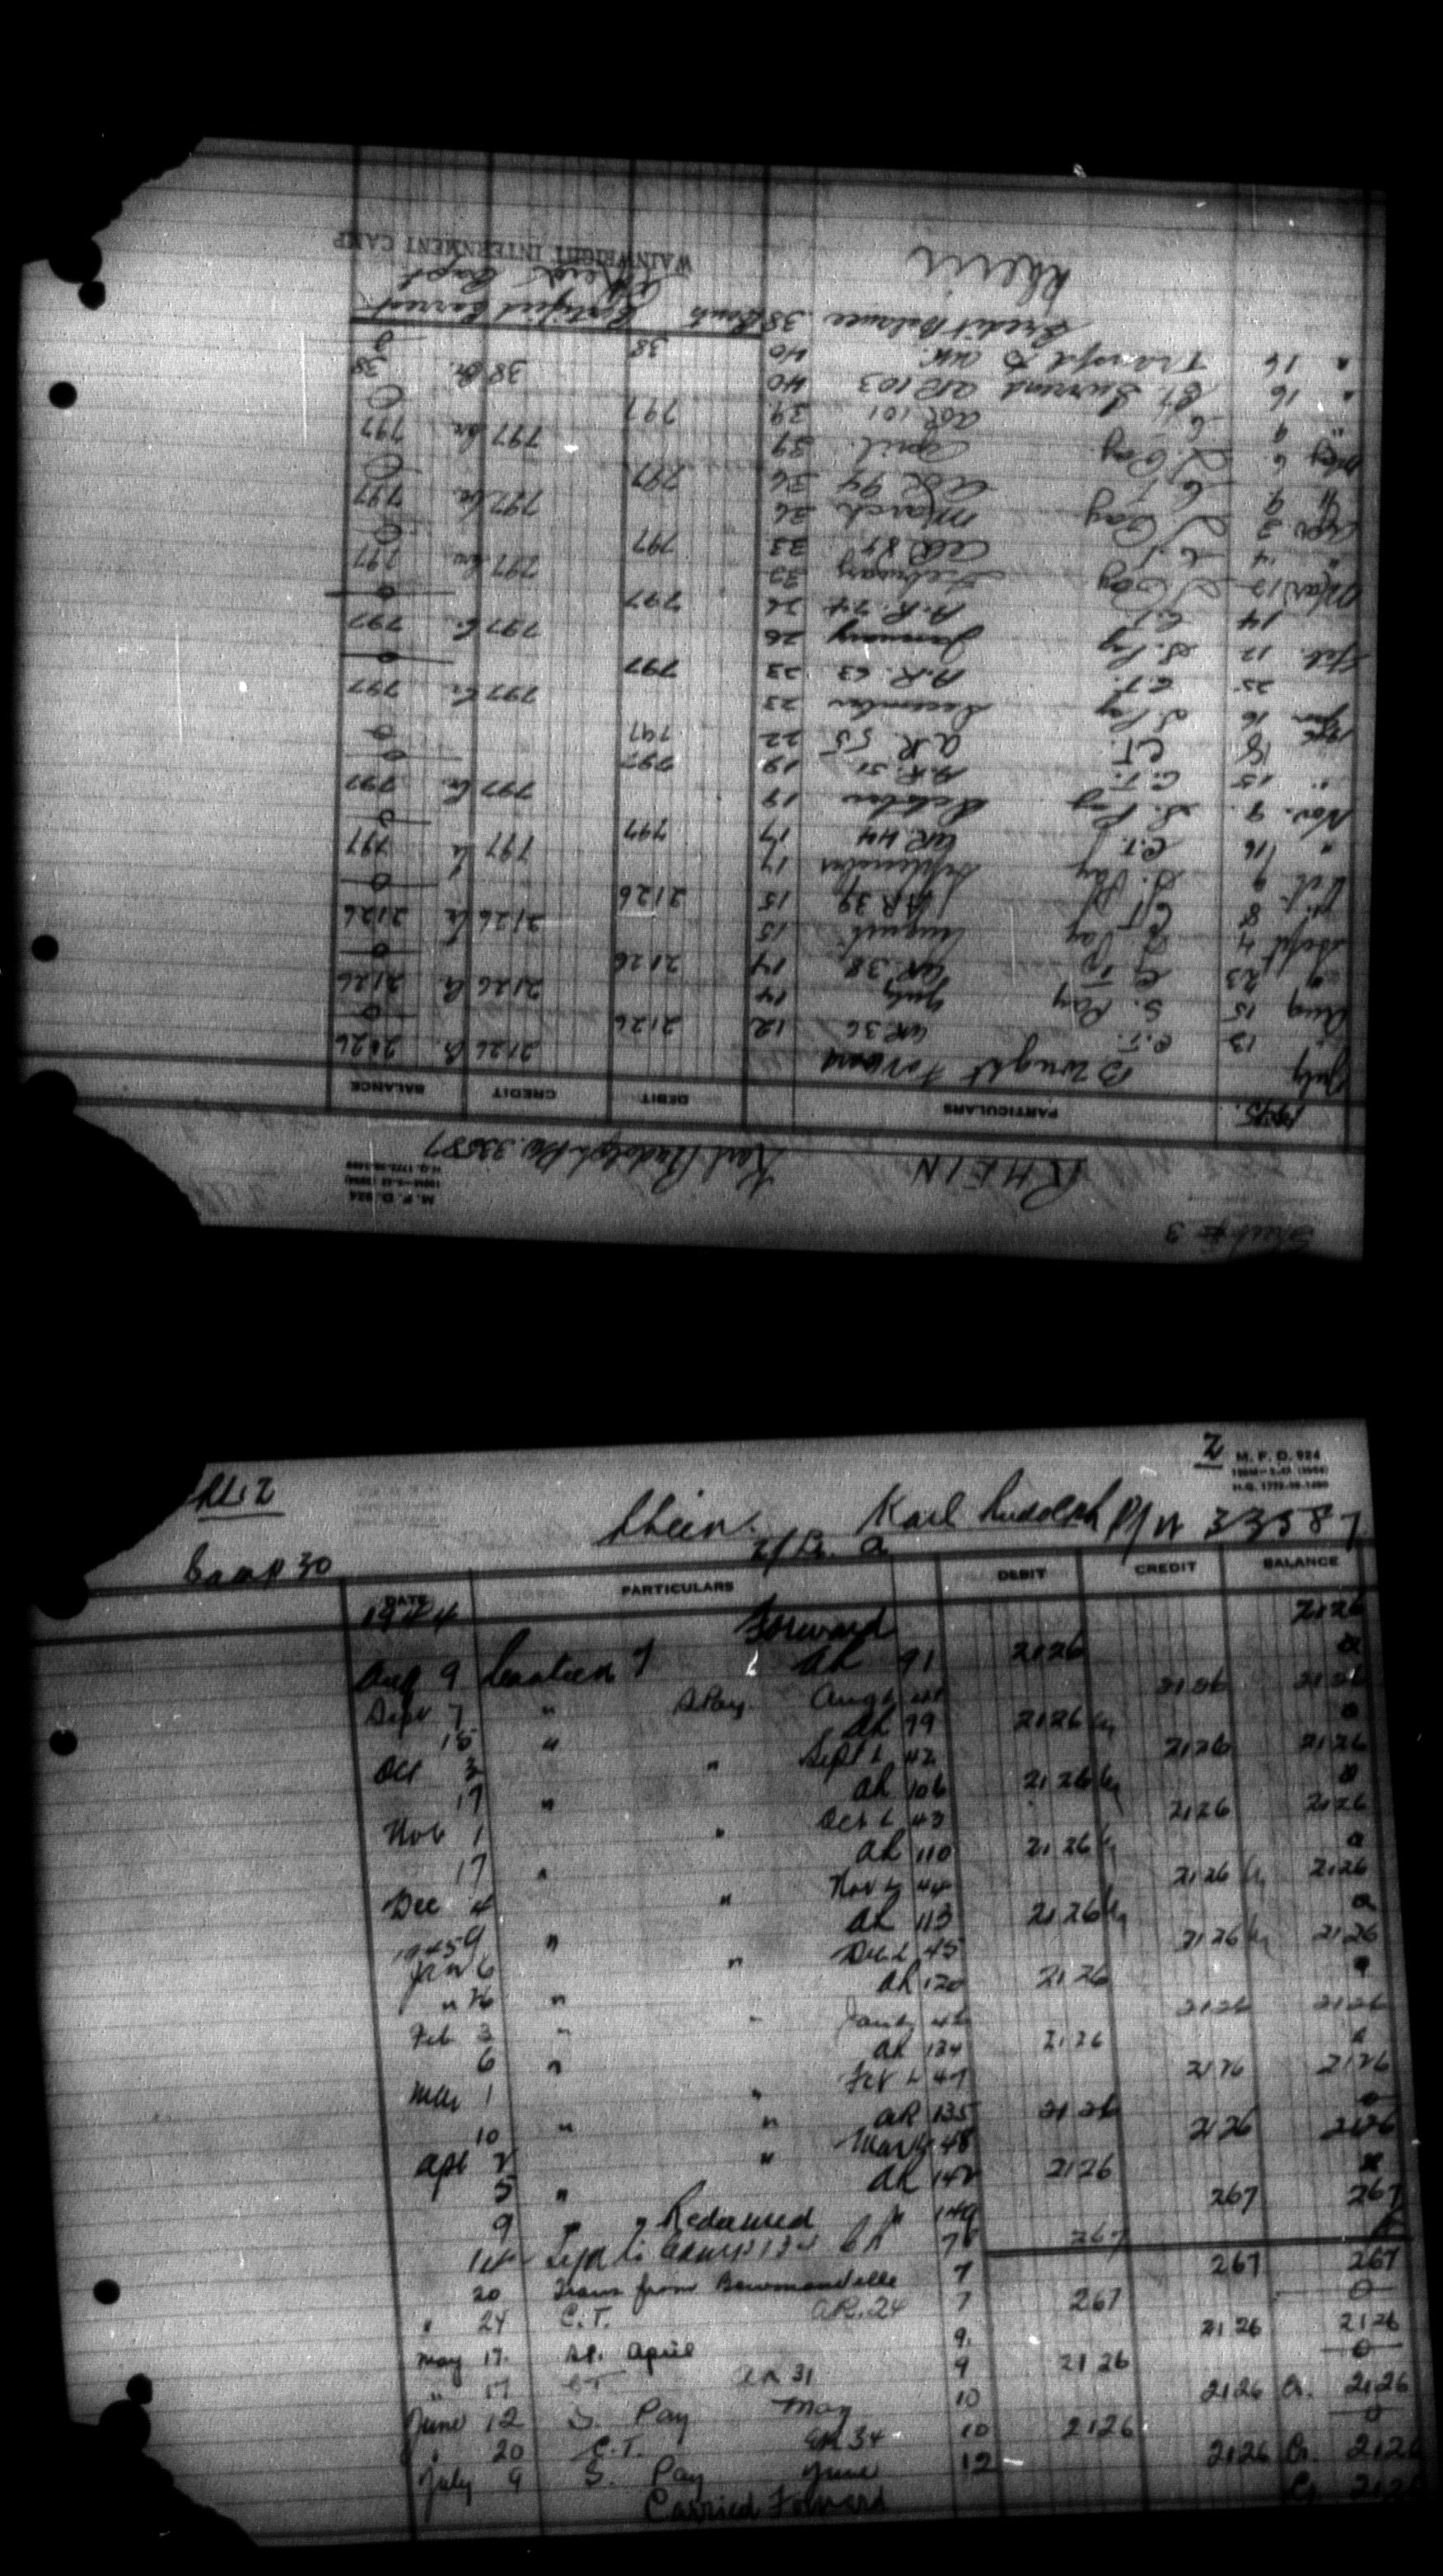 Sheet # 3
M. F. D. 924
RHEIN Karl Rudolph P/W. 33587
1945. PARTICULARS DEBIT CREDIT BALANCE
July Brought Forward 2126 Cr. 2126
13 C.T. AR 36 12 2126 0
Aug 15 S. Pay July 14 2126 Cr. 2126
" 23 C.T. AR. 38 14 2126 0
Sept 4 S. Pay August 15 2126 Cr 2126
" 8 CT AR 39 15 2126 0
Oct. 9 S. Pay September 17 797 Cr 797
" 16 C.T. AR 44 17 797 0
Nov. 9. S. Pay October 19 797 Cr 797
" 15 C.T. A.R. 51 19 797 0
18 CT. AR 55 22 797 0
1946 Jan 16 S Pay December 23 797 Cr 797
25 C.T. A.R. 63 23 797 0
Feb. 12 S. Pay January 26 797 Cr 797
14 C.T. A.R. 74 26 797 0
Mar 12 S Pay February 33 797 Cr 797
" 14 C.T. AR 87 33 797 0
Apr 3 S Pay March 36 797 Cr 797
" 9 C.T. AR 94 36 797 0
May 6 S. Pay April 39 797 Cr 797
" 9 C.T. AR 101 39 797 0
" 16 Ct. Surrend AR 103 40 38 Cr. 38
" 16 Transfd to UK. 40 38 0
Credit Balance 38 Cents Certified Correct
Rhein Capt
WAINWRIGHT INTERNMENT CAMP
Sh. 2
2 M. F. D. 924
H.Q. 1772-39-1490
Rhein. Karl Rudolph P/W 33587
Camp 30
DATE PARTICULARS DEBIT CREDIT BALANCE
1944 Forward 2126
Aug 9 Canteen T AR 91 2126 0
Sept 7 " S Pay Aug 2126 2126
15 " AR 99 2126 0
Oct 3 " Sept 42 2126 2126
17 " AR 106 2126 0
Nov 1 " Oct 43 2126 2126
17 " AR 110 2126 0
Dec 4 " Nov 44 2126 2126
9 " AR 113 2126 0
1945
Jan 6 " Dec 45 2126 2126
" 16 " AR 120 2126 0
Feb 3 " Jan 46 2126 2126
6 " AR 124 2126 0
Mar 1 " Feb 47 2126 2126
10 " " AR 135 2126 0
Apl 2 " Mar 48 2126 2126
5 " AR 142 2126 0
9 " " Redeemed 149 267 267
14 to Camp 76 267
20 Trans from Bowmanville 7 267 267
" 24 C.T. AR. 24 7 267 0
May 17. SP. April 9. 2126 2126
" 17 CT AR 31 9 2126 0
June 12 S. Pay May 10 2126 Cr. 2126
" 20 C.T. AR 34 10 2126 0
July 9 S. Pay June 12 2126 Cr. 2126
Carried Forward Cr 2126